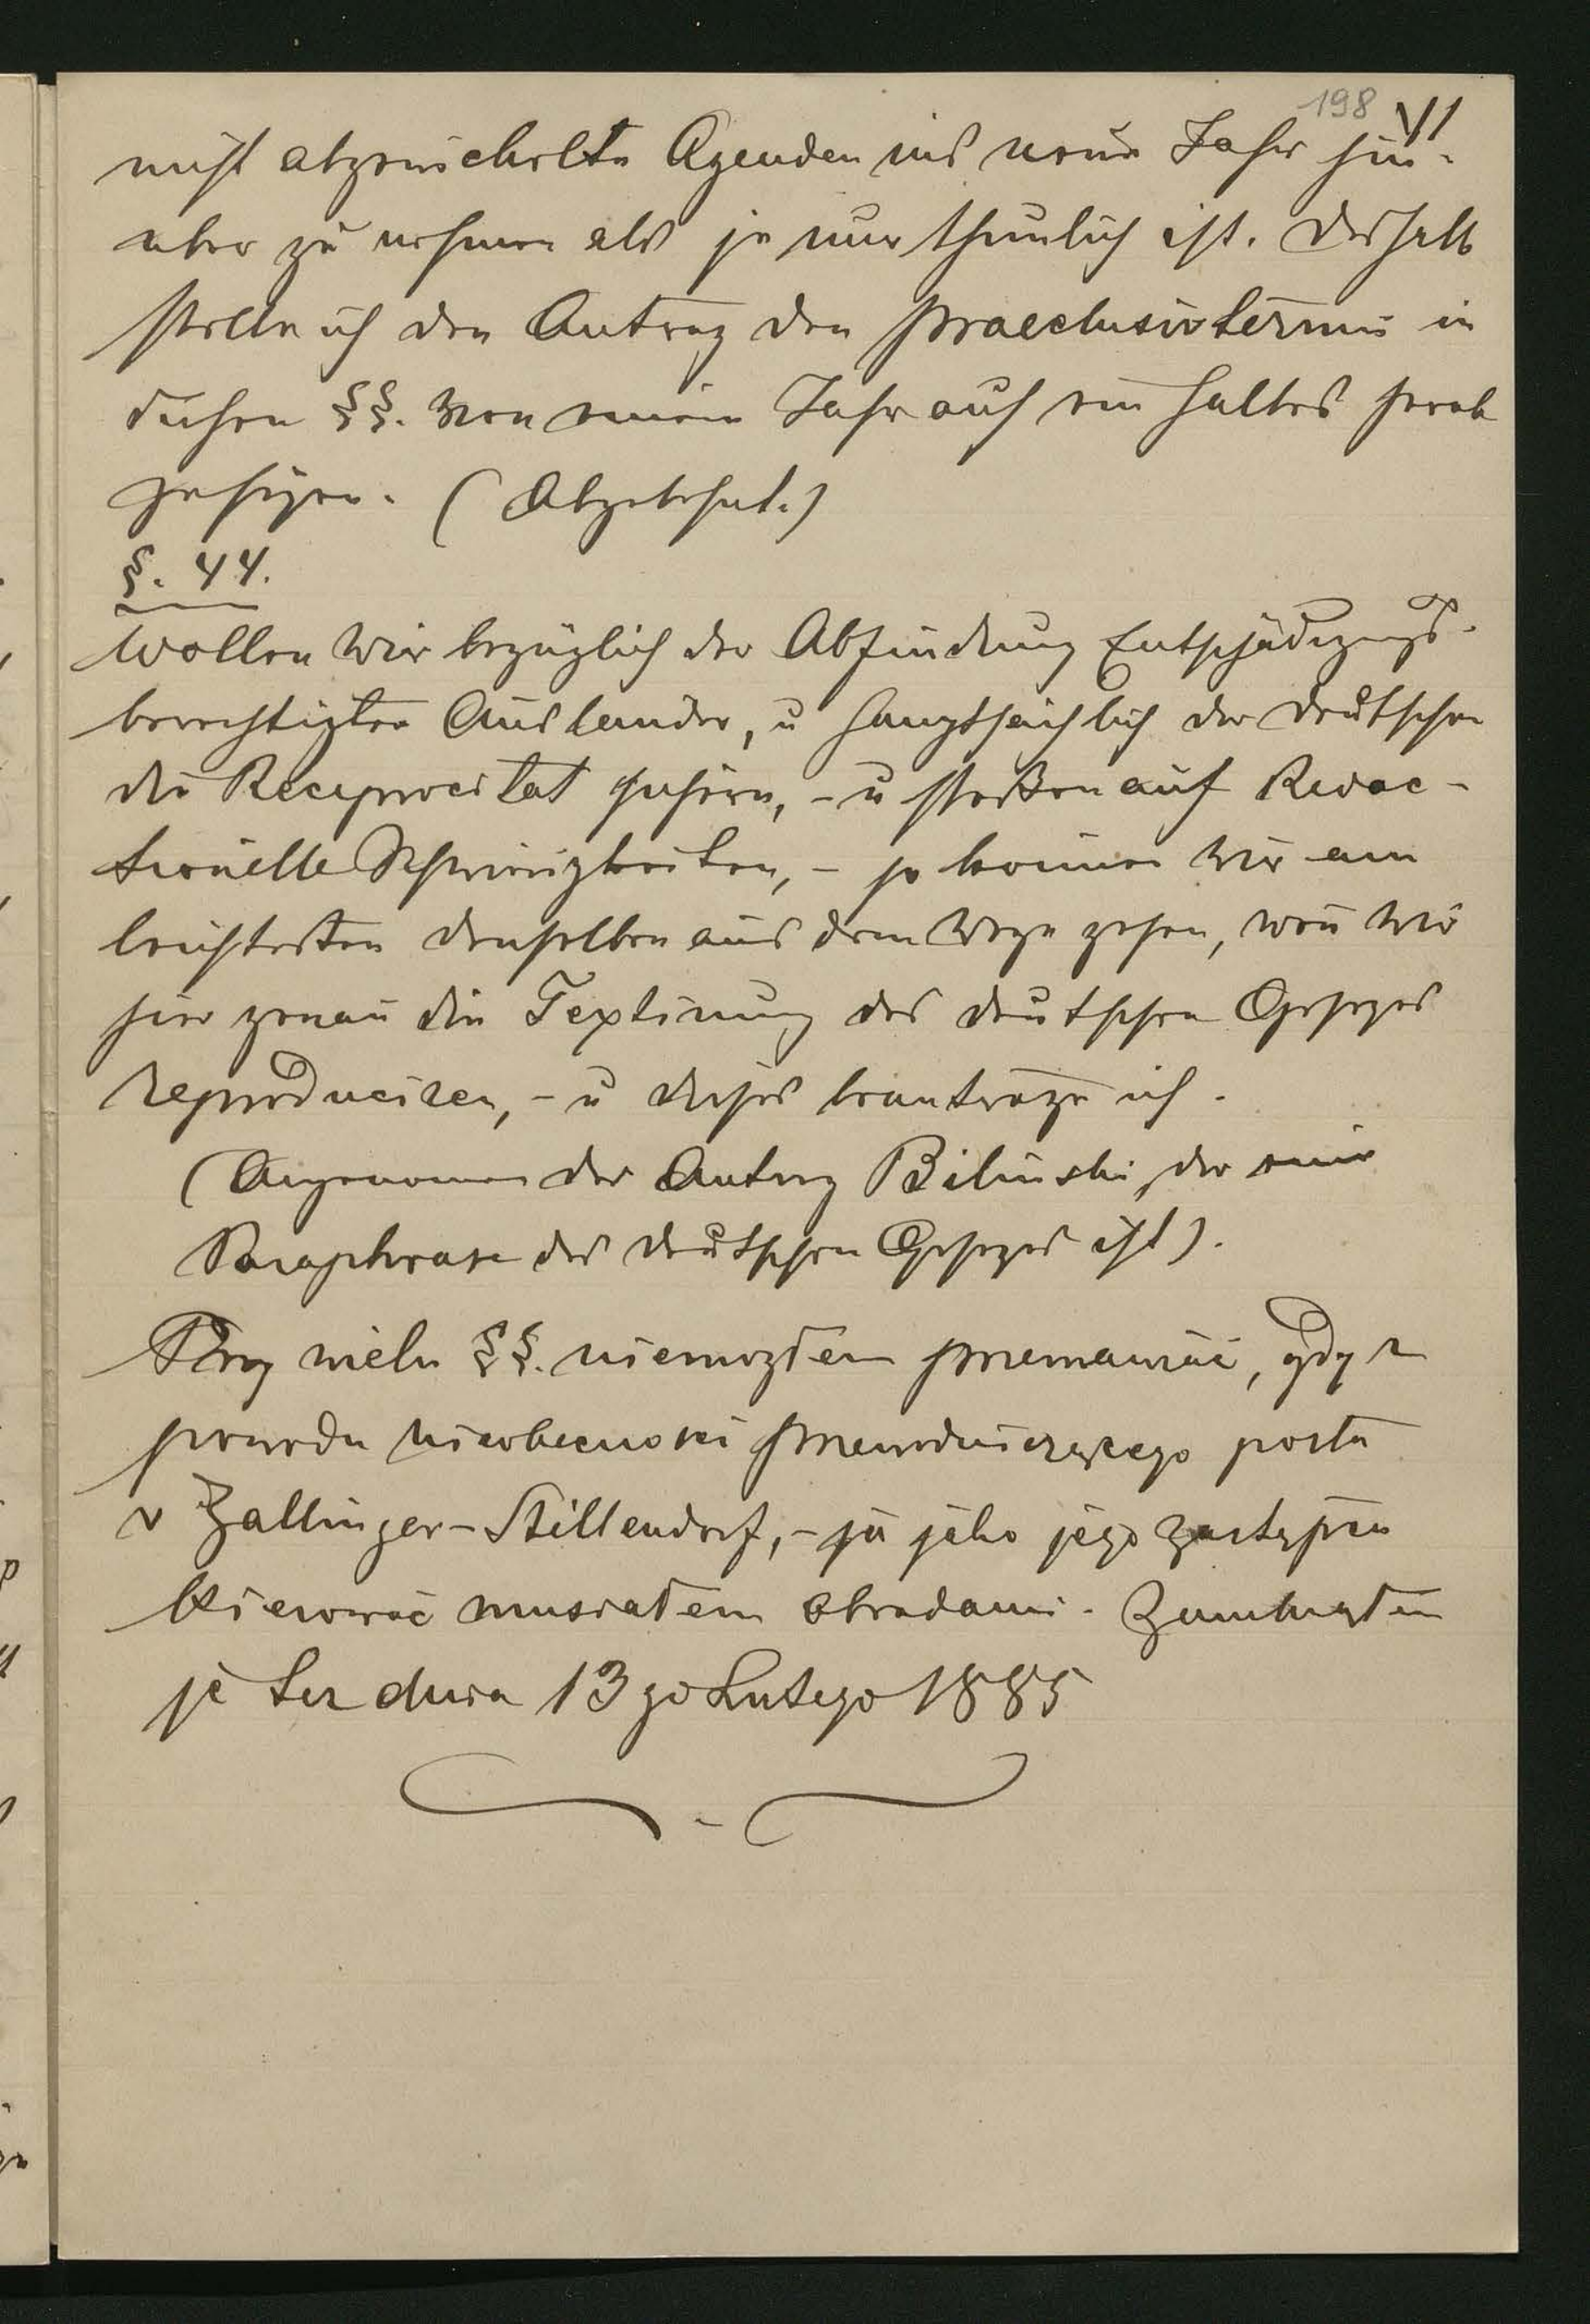 198 VI
nicht abgewickelte Agenden ins neue Jahr hin-
über zu nehmen als je nur thunlich ist. Deshalb
stelle ich den Antrag den Praeclusivtermin in
diesen §§. von einem Jahr auf ein halbes herab
zusezen. (Abgelehnt.)
§. 44.
Wollen wir bezüglich der Abfindung Entschädigungs-
berechtigter Ausländer, u hauptsächlich der deutschen
die Reciprocität sichern, - u stoßen auf Redac-
tionelle Schwirigkeiten, - so könen wir am
leichtesten denselben aus dem Wege gehen, wen̄ wir
hier genau die Textirung des deutschen Gesezes
reproduciren, - u dieses beantrage ich.
(Angenomen der Antrag Biliński, der eine
Paraphrase des deutschen Gesezes ist).
Przy wielu §§. niemogłem przemawiać, gdyż z
powodu nieobecności przewodniczącego posła
v Zallinger-Stillendorf, - ja jako jego zastępca
kierować musiałem obradami. Zamknąłem
je też dnia 13go Lutego 1885